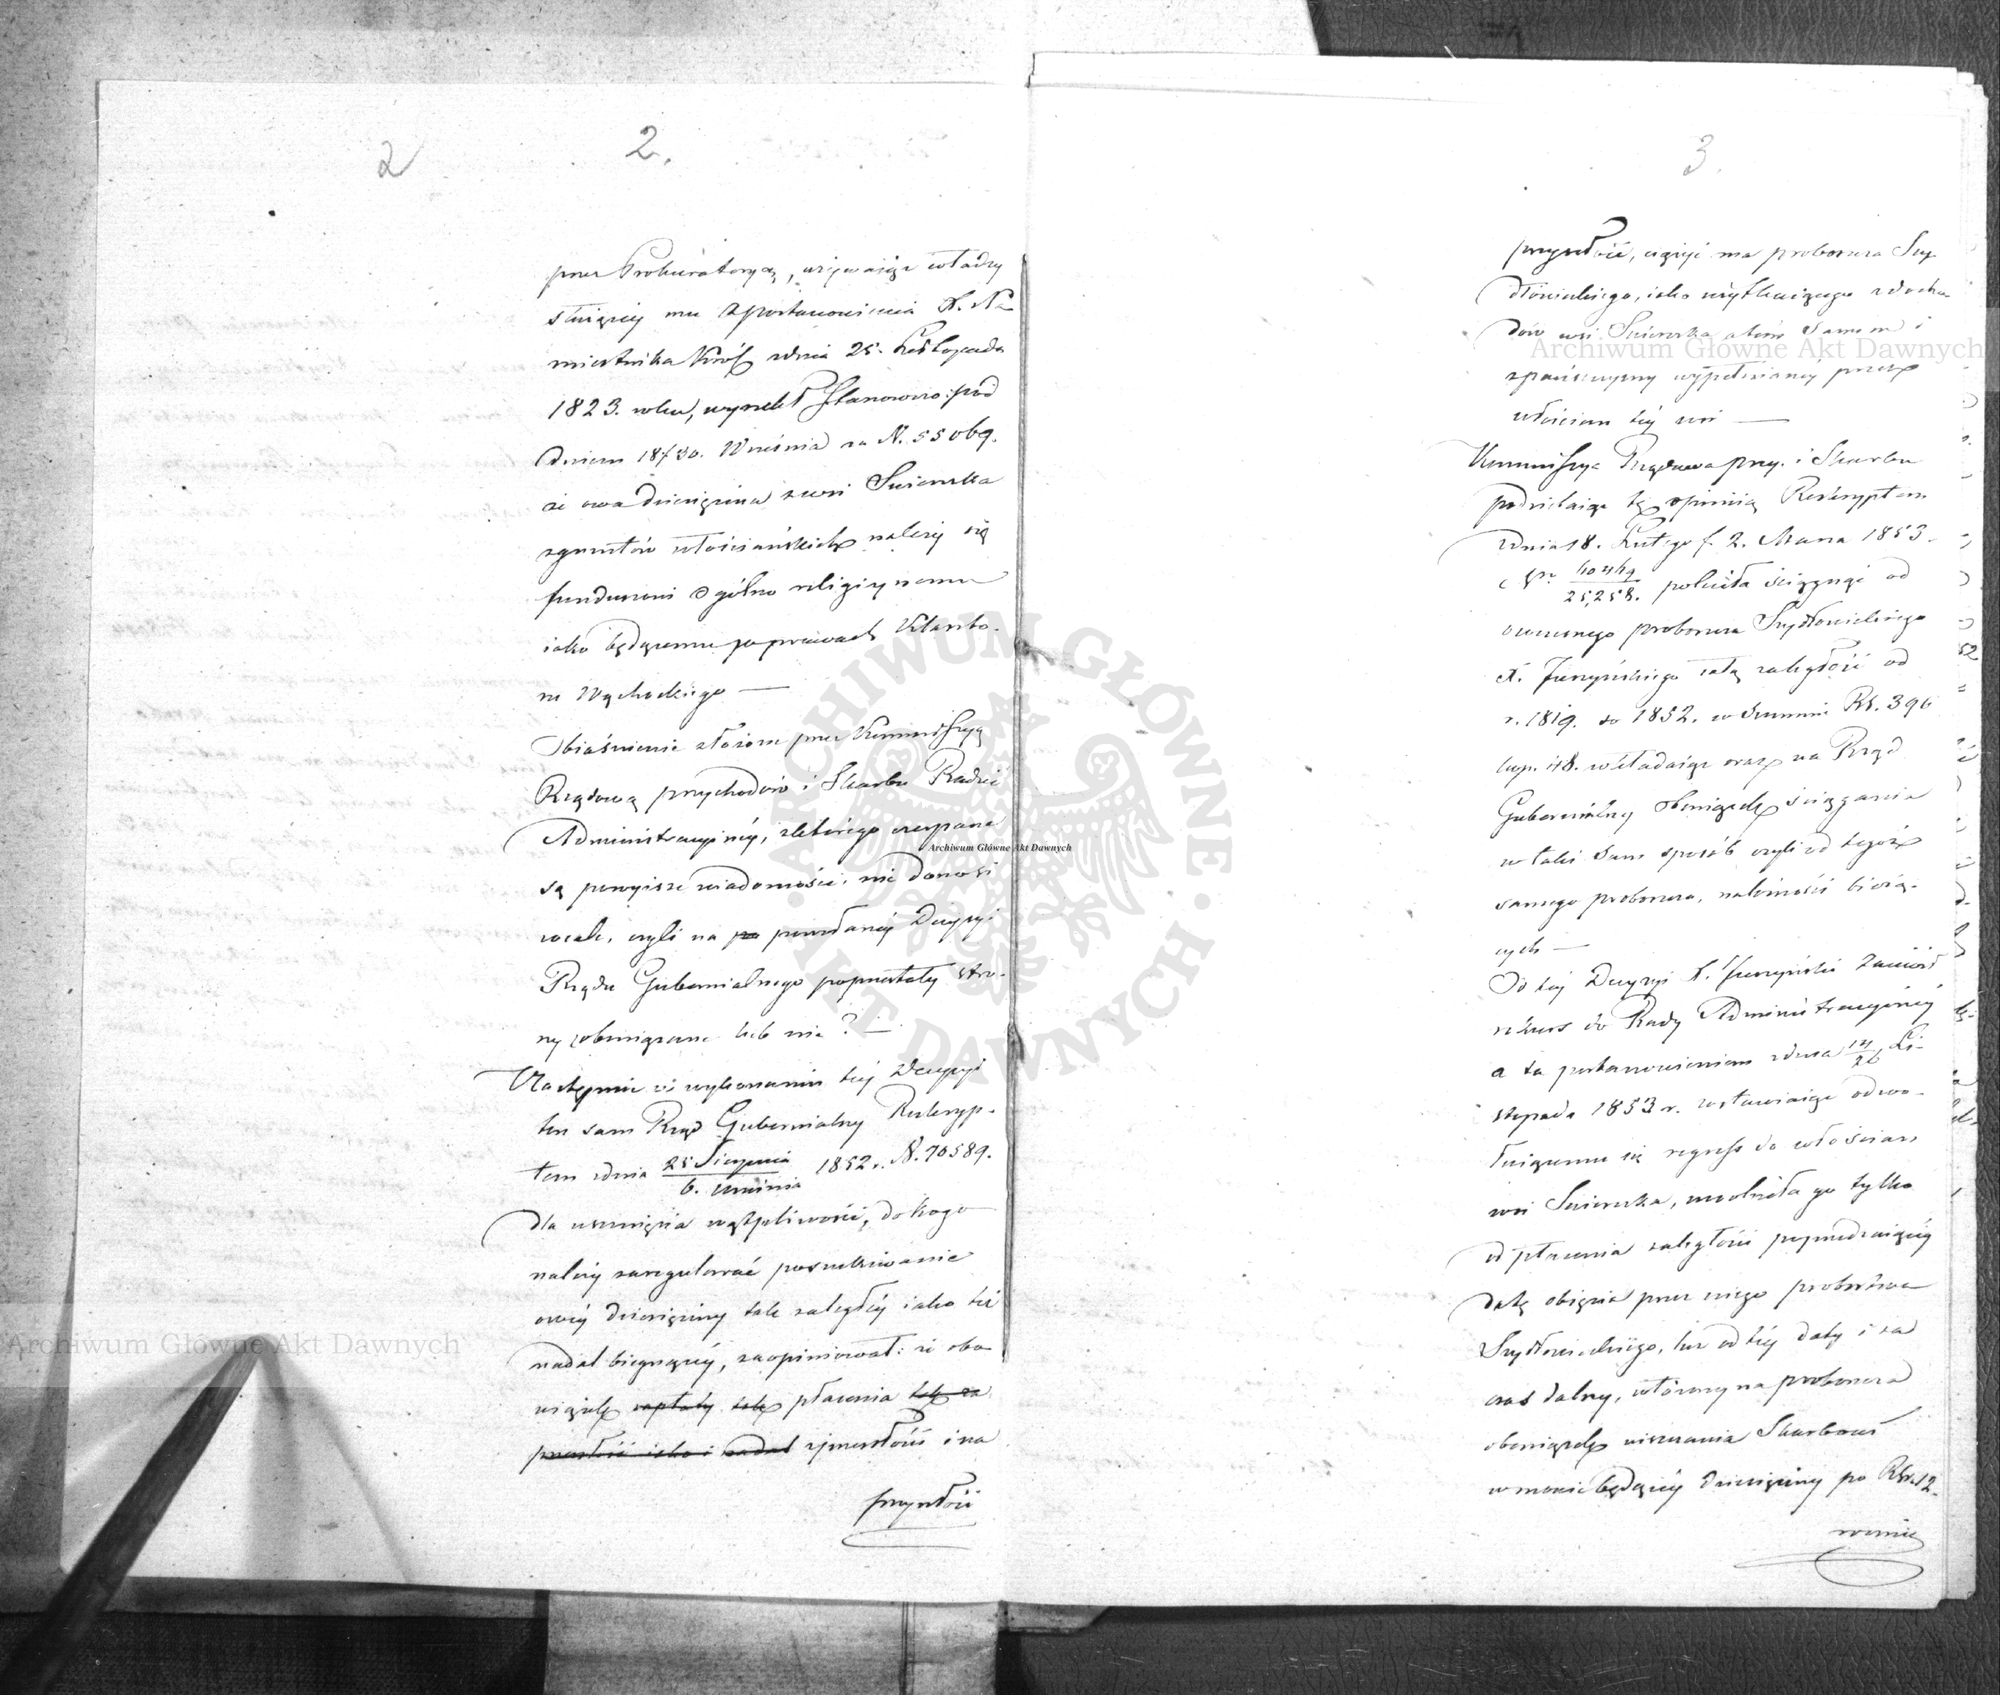 2
2.
przez Prokuratoryą, używaiąc władzy
służącéy mu z postanowienia X. Na-
miestnika Król. z dnia 25. Listopada
1823. roku, wyrzekł stanowczo: pod
dniem 18/30. Września za N. 55069.
że owa dziesięcina z wsi Świerczka
z gruntów włościańskich należy się
funduszowi ogólno religijnemu
iako będącemu w prawach Klaszto-
ru Wąchockiego —
Obiaśnienie złożone przez Kommissyą
Rządową przychodów i Skarbu Radzie
Administracyjnéy, z którego czerpane
są powyższe wiadomości, nie donosi
wcale, czyli na po powołanéy Decyzyi
Rządu Gubernialnego poprzestały stro-
ny zobowiązane lub nie? —
Następnie w wykonaniu téy Decyzyi
ten sam Rząd Gubernialny Reskryp-
tem z dnia 25 Sierpnia / 6. Września 1852 r. N. 70589.
dla usunięcia wątpliwości, do kogo
należy zaregulować poszukiwanie
owéy dziesięciny tak zaległéy iako też
nadal bieżącéy, zaopiniował: że obo-
wiązek zapłaty tak płacenia tak za
przeszłość iako i nadal z przeszłości i na
przyszłość
3.
przyszłość, ciążyć ma proboszcza Szy-
dłowieckiego, iako użytkuiącego z docho-
dów wsi Świerczka a tém samem i
z pańszczyzny wypełnianéy przez
włościan téy wsi —
Kommissya Rządowa przy. i Skarbu
podzielaiąc tę opinią Reskryptem
z dnia 18. Lutego / 2. Marca 1853.
N° 40469 / 25,258. poleciła ściągnąć od
owczesnego proboszcza Szydłowieckiego
X. Juszyńskiego całą zaległość od
r. 1819. do 1852. w summie Rs. 396
kop. 48. wkładaiąc oraz na Rząd
Gubernialny obowiązek ściągania
w taki sam sposób czyli od tegoż
samego proboszcza, należności bieżą-
cych —
Od téy Decyzyi X. Juszyński zaniósł
rekurs do Rady Administracyjnéy
a ta postanowieniem z dnia 14/26 Li-
stopada 1853 r. zostawiaiąc odwo-
łuiącemu się regress do włościan
wsi Świerczka, uwolniła go tylko
od płacenia zaległości poprzedzaiącéy
datę obięcia przez niego probostwa
Szydłowieckiego, lecz od téy daty i na
czas dalszy, włożony na proboszcza
obowiązek uiszczania Skarbowi
w mowie będącéy dziesięciny po Rsr. 12.